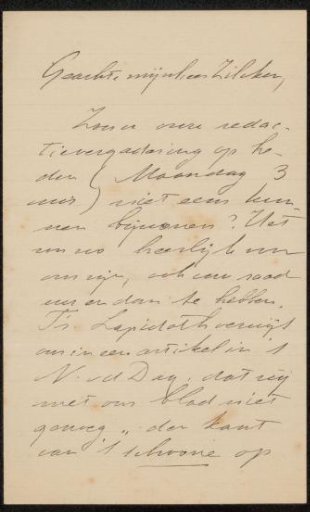 Geachte mijnheer Zilcken,
Zou u onze redac-
tievergadering op he-
den (Maandag 3
uur) niet eens kun-
nen bijwonen? Het
zou zoo heerlijk voor
ons zijn, ook uw raad
nu en dan te hebben.
Fr. Lapidoth verwijt
ons in een artikel in 't
N. v d Dag, dat wij
met ons blad niet
genoeg „ den kant
van 't schoone op